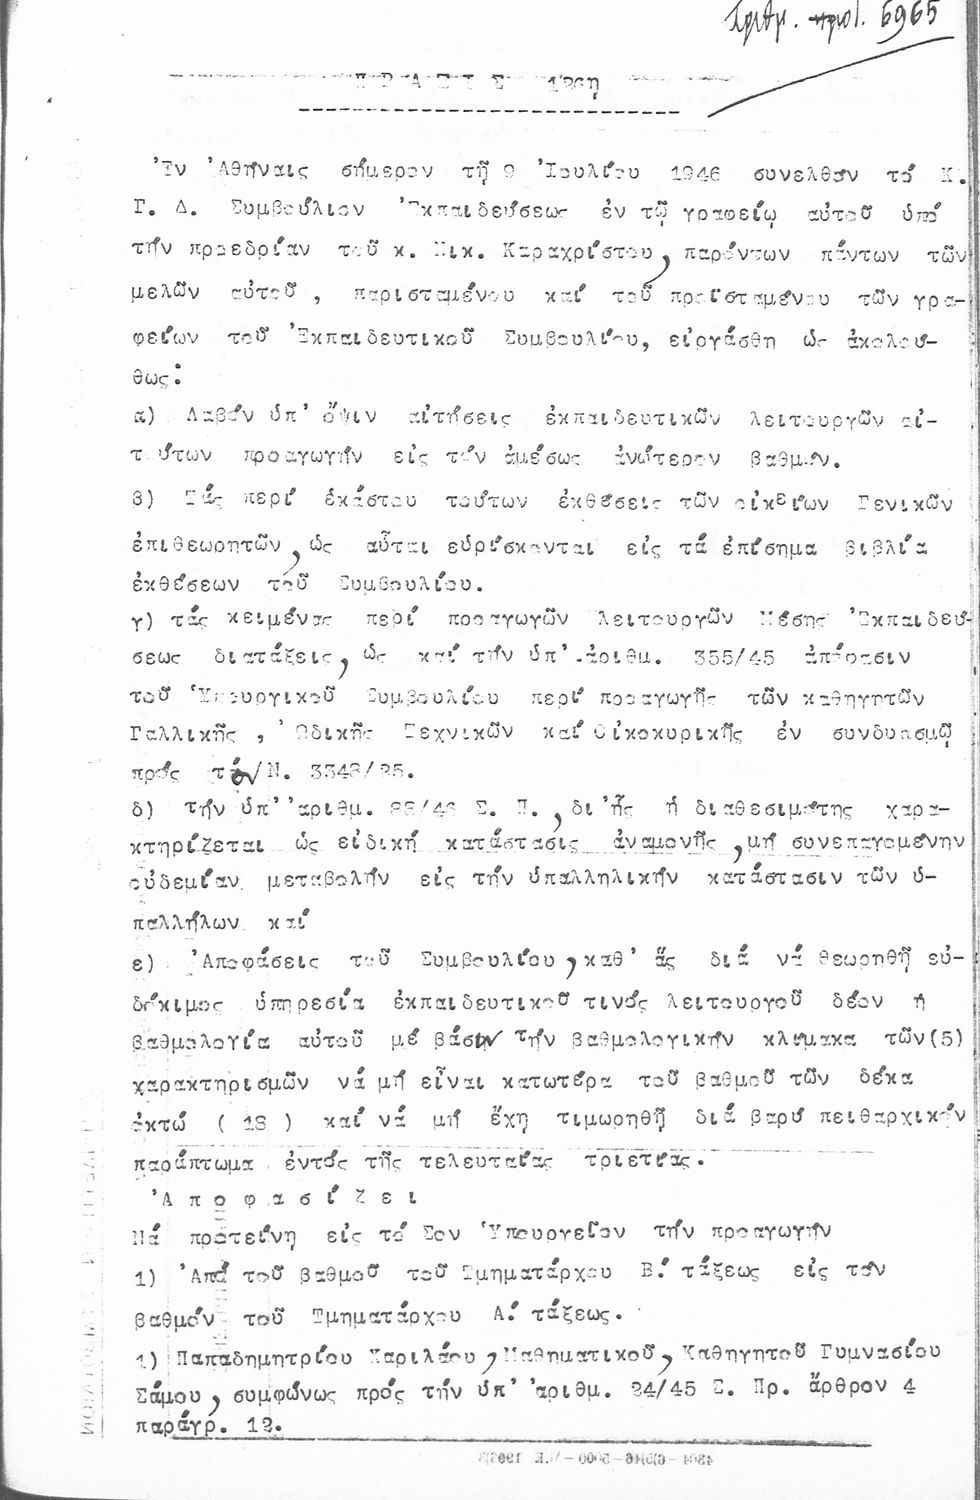 Ἀριθμ. πρωτ. 6965
Π Ρ Α Ξ Ι Σ 126η
Ἐν Ἀθήναις σήμερον τῇ 9 Ἰουλίου 1946 συνελθόν τό Κ.
Γ. Δ. Συμβούλιον Ἐκπαιδεύσεως ἐν τῷ γραφείῳ αὐτοῦ ὑπό
τήν προεδρίαν τοῦ κ. Νικ. Καραχρίστου, παρόντων πάντων τῶν
μελῶν αὐτοῦ , παρισταμένου καί τοῦ προϊσταμένου τῶν γρα-
φείων τοῦ Ἐκπαιδευτικοῦ Συμβουλίου, εἰργάσθη ὡς ἀκολού-
θως:
α) Λαβόν ὑπ' ὄψιν αἰτήσεις ἐκπαιδευτικῶν λειτουργῶν αἰ-
τούτων προαγωγήν εἰς τόν ἀμέσως ἀνώτερον βαθμόν.
β) Τάς περί ἑκάστου τούτων ἐκθέσεις τῶν οἰκείων Γενικῶν
ἐπιθεωρητῶν, ὡς αὗται εὑρίσκονται εἰς τά ἐπίσημα βιβλία
ἐκθέσεων τοῦ Συμβουλίου.
γ) τάς κειμένας περί προαγωγῶν λειτουργῶν Μέσης Ἐκπαιδεύ-
σεως διατάξεις, ὡς καί τήν ὑπ' ἀριθμ. 355/45 ἀπόφασιν
τοῦ Ὑπουργικοῦ Συμβουλίου περί προαγωγῆς τῶν καθηγητῶν
Γαλλικῆς , Ὠδικῆς Τεχνικῶν καί Οἰκοκυρικῆς ἐν συνδυασμῷ
πρός τόν Ν. 3348/25.
δ) τήν ὑπ' ἀριθμ. 88/46 Σ. Π. , δι' ἧς ἡ διαθεσιμότης χαρα-
κτηρίζεται ὡς εἰδική κατάστασις ἀναμονῆς , μή συνεπαγομένην
οὐδεμίαν μεταβολήν εἰς τήν ὑπαλληλικήν κατάστασιν τῶν ὑ-
παλλήλων καί
ε) Ἀποφάσεις τοῦ Συμβουλίου, καθ' ἅς διά νά θεωρηθῇ εὐ-
δόκιμος ὑπηρεσία ἐκπαιδευτικοῦ τινός λειτουργοῦ δέον ἡ
βαθμολογία αὐτοῦ μέ βάσιν τήν βαθμολογικήν κλίμακα τῶν (5)
χαρακτηρισμῶν νά μή εἶναι κατωτέρα τοῦ βαθμοῦ τῶν δέκα
ὀκτώ ( 18 ) καί νά μή ἔχῃ τιμωρηθῇ διά βαρύ πειθαρχικόν
παράπτωμα ἐντός τῆς τελευταίας τριετίας.
Ἀ π ο φ α σ ί ζ ε ι
Νά προτείνῃ εἰς τό Σον Ὑπουργεῖον τήν προαγωγήν
1) Ἀπό τοῦ βαθμοῦ τοῦ Τμηματάρχου Β.' τάξεως εἰς τόν
βαθμόν τοῦ Τμηματάρχου Α.' τάξεως.
1) Παπαδημητρίου Χαριλάου, Μαθηματικοῦ, Καθηγητοῦ Γυμνασίου
Σάμου, συμφώνως πρός τήν ὑπ' ἀριθμ. 24/45 Σ. Πρ. ἄρθρον 4
παράγρ. 12.